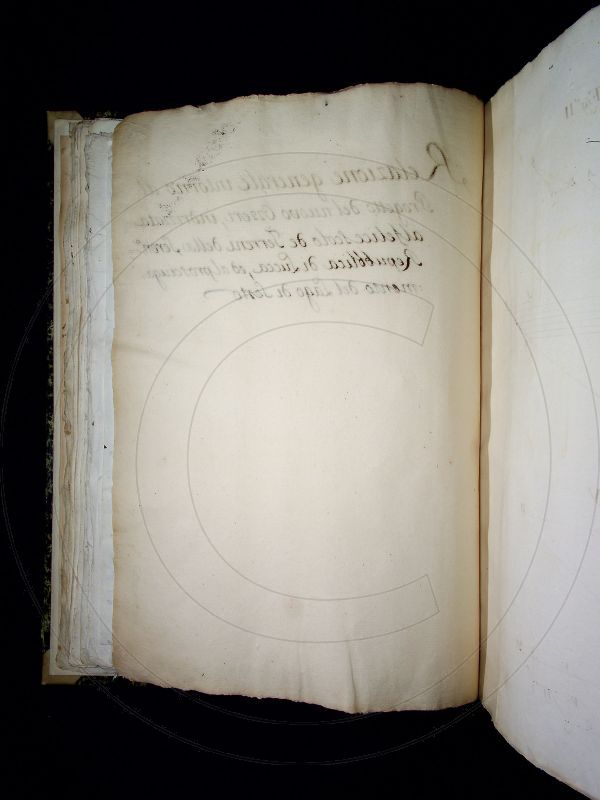 Relazione generale intorno al
Progetto del nuovo Osseri, indirizzato
al felice scolo de Terreni della Seren.
Repubblica di Lucca, ed al prosciug
mento del Lago di Sesto